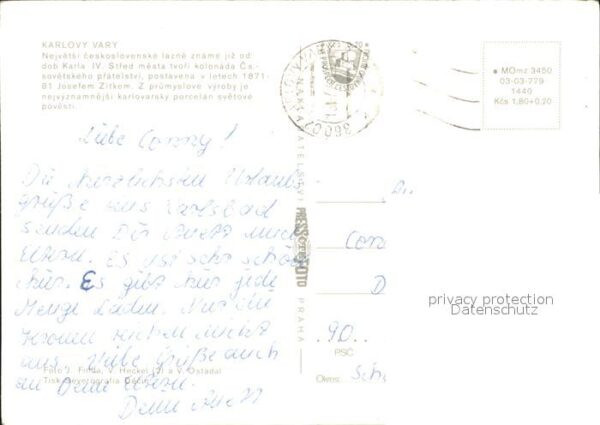 KARLOVY VARY
Největší československé lázně známé již od
dob Karla IV. Střed města tvoří kolonáda Čs.-
sovětského přátelství, postavena v letech 1871-
81 Josefem Zítkem. Z průmyslové výroby je
nejvýznamnější karlovarský porcelán světové
pověsti.
MOmz 3450
03-03-779
1440
Kčs 1,80+0,20
360 07
Liebe Conny!
Die herzlichsten Urlaubs-
grüße aus Karlsbad
senden Dir mich
Eltern. Es ist sehr schön
hier. Es gibt hier jede
Menge Läden. Nur
kommt nicht
aus. Viele Grüße auch
an Deine Eltern.
Dein
NAKLADATELSTVÍ
PRESSFOTO
PRAHA
Di
Con
D
90
PSČ
Okres:
Sch
privacy protection
Datenschutz
Foto J. Finda, V. Heckel (2) a V. Ostádal
Tisk Severografia Děčín